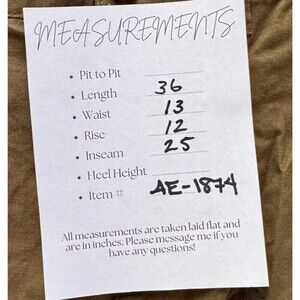 MEASUREMENTS
• Pit to Pit
• Length 36
• Waist 13
• Rise 12
• Inseam 25
• Heel Height
• Item # AE-1874
All measurements are taken laid flat and
are in inches. Please message me if you
have any questions!